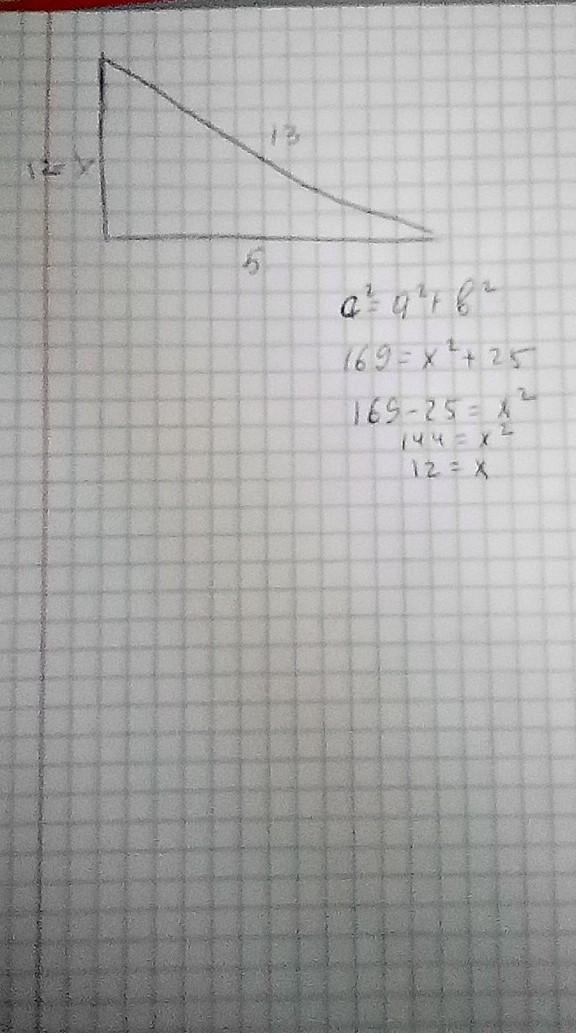 13
12=x
5
a²=a²+b²
169=x²+25
169-25=x²
144=x²
12=x